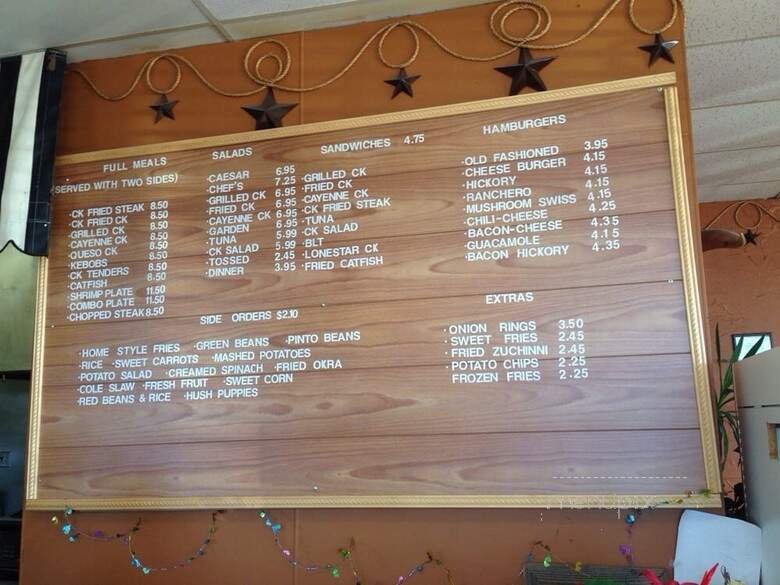 FULL MEALS
(SERVED WITH TWO SIDES)
·CK FRIED STEAK 8.50
·CK FRIED CK 8.50
·GRILLED CK 8.50
·CAYENNE CK 8.50
·QUESO CK 8.50
·KEBOBS 8.50
·CK TENDERS 8.50
·CATFISH 8.50
·SHRIMP PLATE 11.50
·COMBO PLATE 11.50
·CHOPPED STEAK 8.50
SALADS
·CAESAR 6.95
·CHEF'S 7.25
·GRILLED CK 6.95
·FRIED CK 6.95
·CAYENNE CK 6.95
·GARDEN 6.95
·TUNA 5.99
·CK SALAD 5.99
·TOSSED 2.45
·DINNER 3.95
SANDWICHES 4.75
·GRILLED CK
·FRIED CK
·CAYENNE CK
·CK FRIED STEAK
·TUNA
·CK SALAD
·BLT
·LONESTAR CK
·FRIED CATFISH
HAMBURGERS
·OLD FASHIONED 3.95
·CHEESE BURGER 4.15
·HICKORY 4.15
·RANCHERO 4.15
·MUSHROOM SWISS 4.15
·CHILI-CHEESE 4.25
·BACON-CHEESE 4.35
·GUACAMOLE 4.15
·BACON HICKORY 4.35
SIDE ORDERS $2.10
·HOME STYLE FRIES ·GREEN BEANS ·PINTO BEANS
·RICE ·SWEET CARROTS ·MASHED POTATOES
·POTATO SALAD ·CREAMED SPINACH ·FRIED OKRA
·COLE SLAW ·FRESH FRUIT ·SWEET CORN
·RED BEANS & RICE ·HUSH PUPPIES
EXTRAS
·ONION RINGS 3.50
·SWEET FRIES 2.45
·FRIED ZUCHINNI 2.45
·POTATO CHIPS 2.25
FROZEN FRIES 2.25